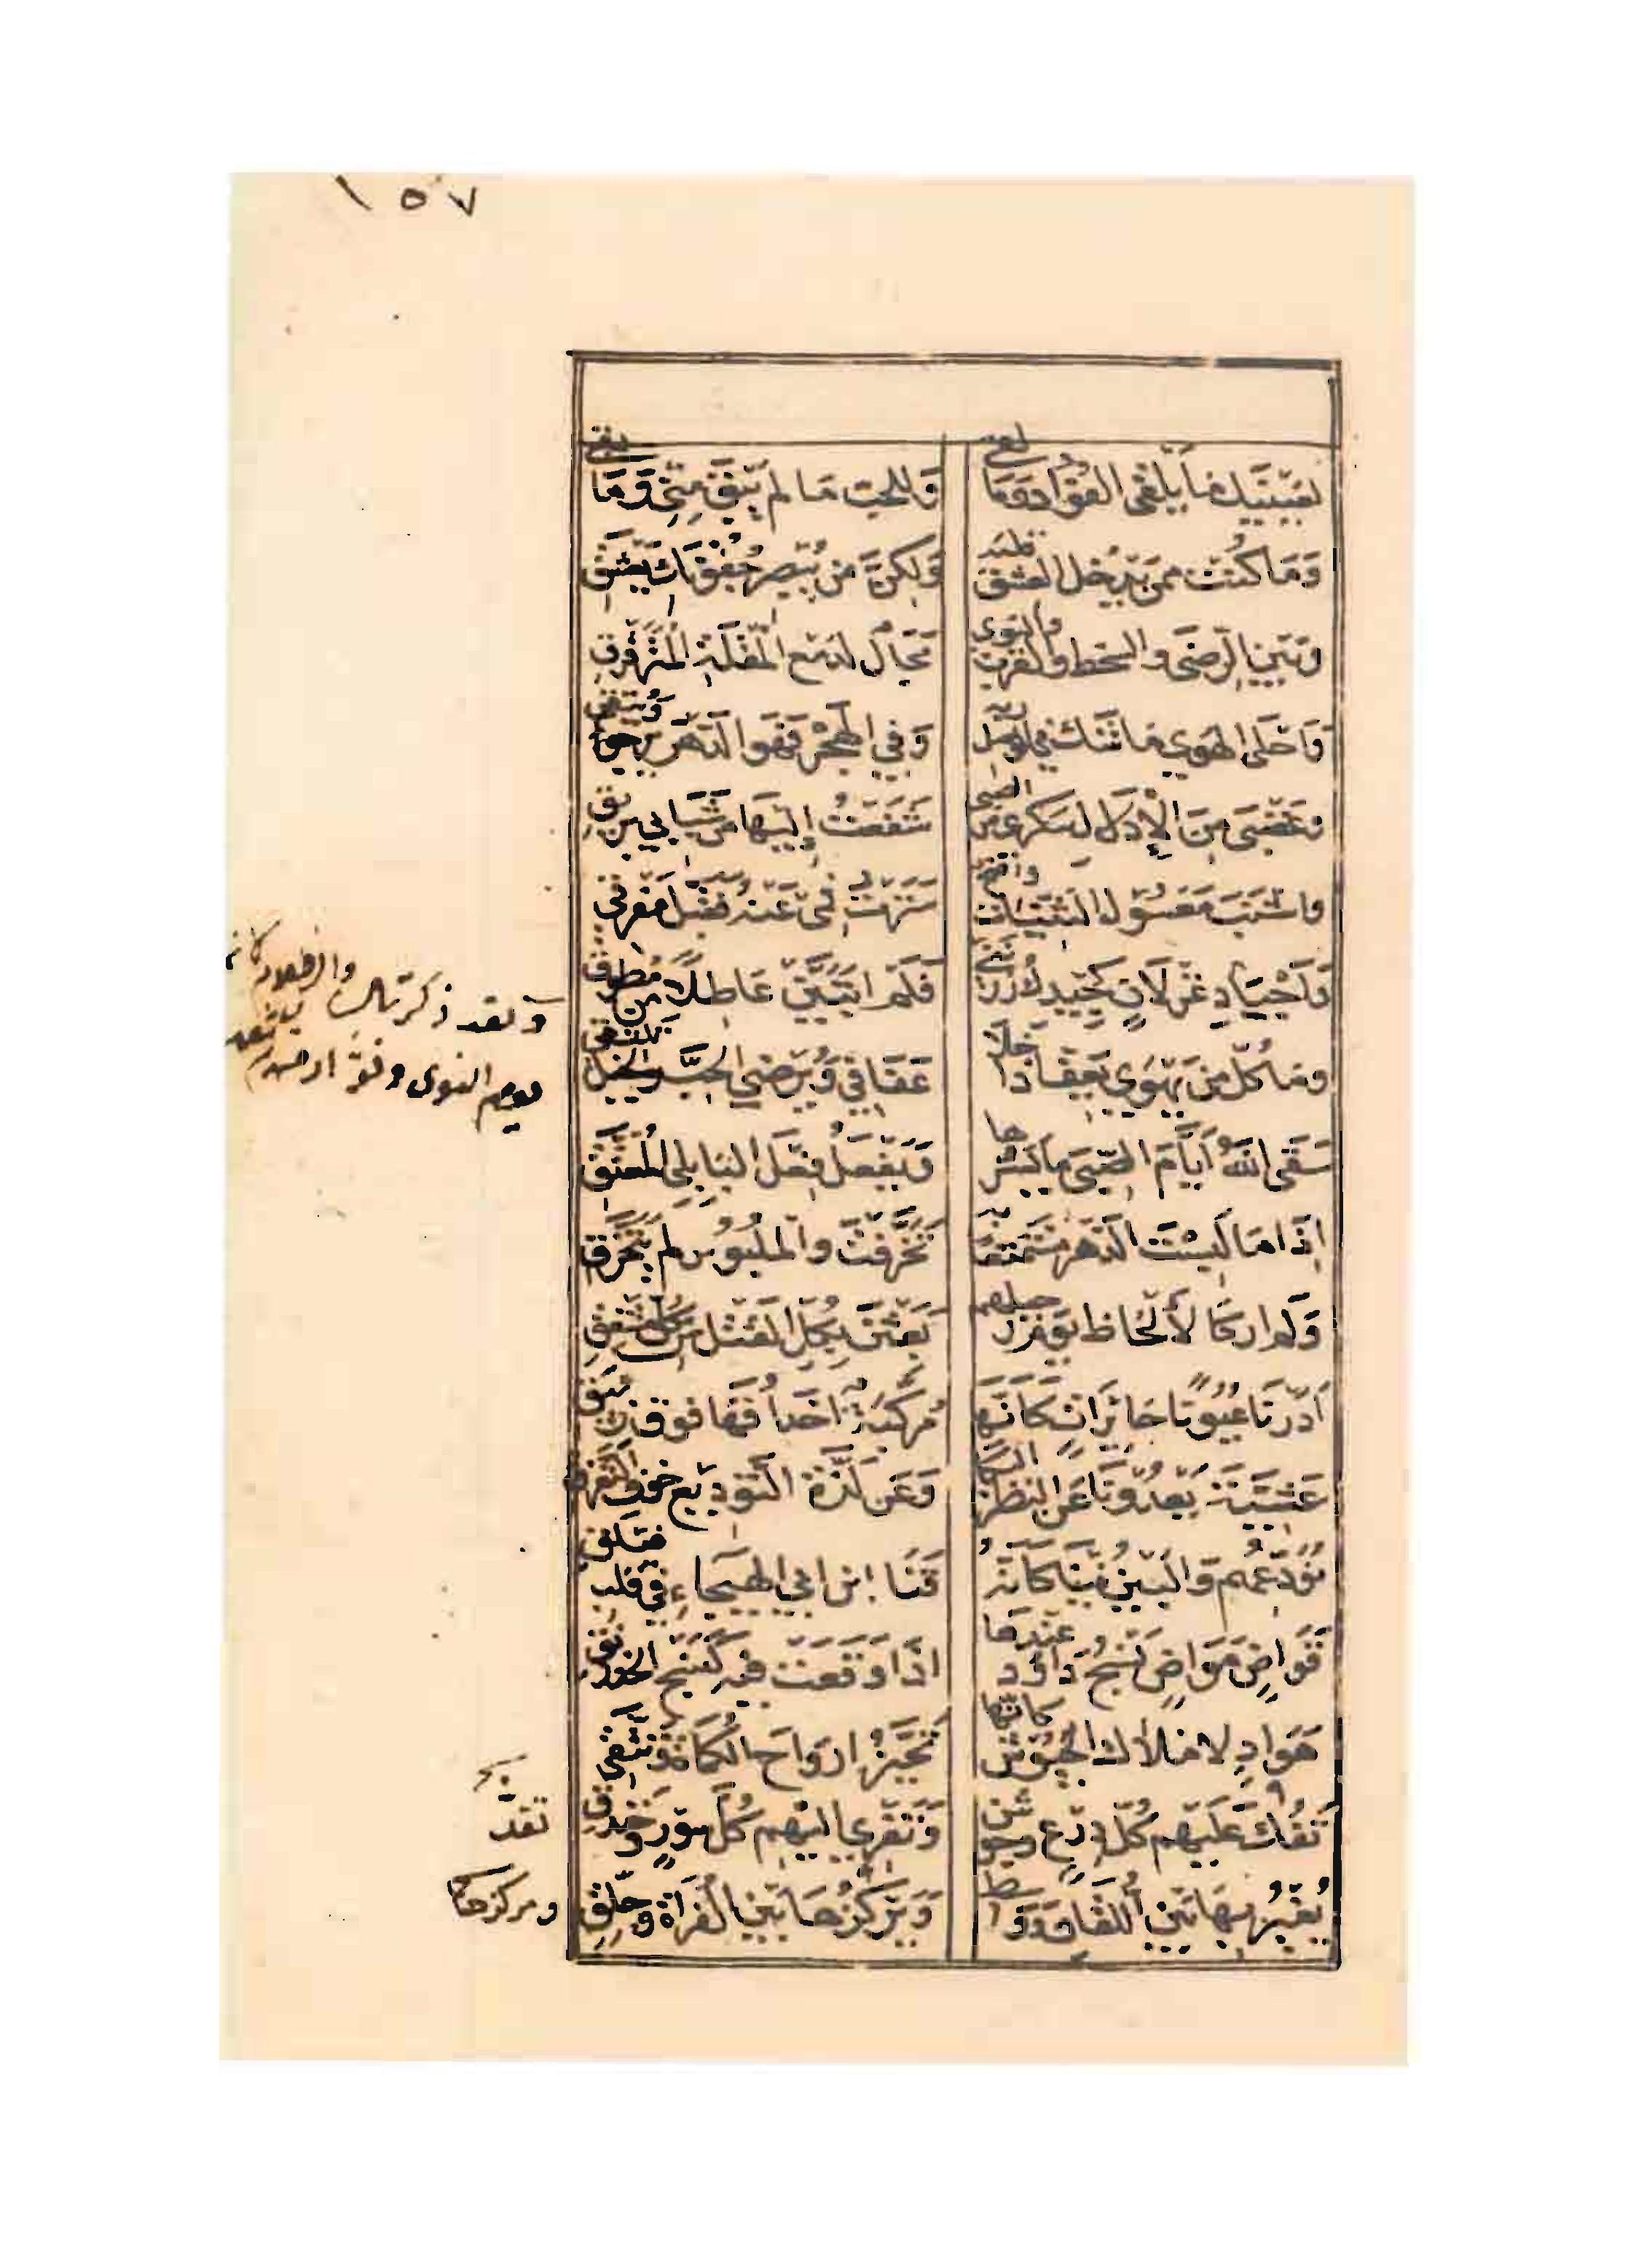 ١٥٧
لعَيْنَيْكِ مَا يَلْقَى الفُؤَادُ وَمَا لقى وَللحبّ مَا لم يَبْقَ مِنّي وَمَا بقى
وَمَا كُنْتُ ممَن يَدْخل العشق قلبه وَلكِنَّ مَن يُبْصِر جُفُونَكِ يَعْشَقِ
وَبَيْنَ الرِضَى والسخط والقرب والنوى مَجَالٌ لدَمْعِ المُقْلَةِ المُتَرَقْرِقِ
وَاحْلَى الهَوى مَا شَكَّ في الوصل ربه وَفي الهَجْرِ فَهوَ الدَهْرَ يَرجو ويتقى
وَغَضْبَى مِنَ الإدلال سكرى من الصبى شَفَعْتُ إلَيْهَا مِنْ شَبَابي بريق
واشْنَبَ مَعْسُول الثَنِيّات واضح سَتَرْتُ فَمى عَنْهُ فَقَبَّلَ مَفْرِقى
وَأجْيَادِ غِزْلَانٍ كَجِيدِكِ زُرْنني فَلَمْ اتَبَيَّنْ عَاطِلاً مِن مُطوق
وَمَا كُلّ مَن يَهْوى يَعِفّ إذا خلا عَفَافي وَيُرْضِي الحِبَّ والخيل تلتقى
سَقَى اللهُ أيّامَ الصِّبَى مَا يسرها وَيَفْعَلُ فِعْلَ البَابِليِّ المُعَتَّقِ
إذَا مَا لَبِسْتَ الدَهْرَ مُسْتَمْتِعًا بِه تَخَرَّقْتَ والمَلْبُوسُ لم يَتَخَرَّقِ
وَلَم ارَ كَالأَلْحَاظِ يَوْمَ رحيلهم بَعَثْنَ بِكُلِّ القَتْلِ مِن كلّ مُشْفِقِ
أدَرْنَ عُيُونًا حَائِرَاتٍ كَأنَّهَا مُرَكَّبَةٌ احْدَاقُهَا فَوْقَ زئبق
عَشِيَّةَ يَعْدُونَا عَن النَظَرِ البكا وَعَن لَذَّةِ التَّوْدِيعِ خَوفُ التفرق
نُوَدّعُهُم وَالبَيْنُ فِينَا كَأنَّهُ قَنَا ابْنِ ابي الهَيْجَاءِ في قلب فيلق
قَوَاضٍ مَوَاضٍ نَسْجُ دَاوُد عِنْدَهَا اذَا وَقَعَتْ فيهِ كَنَسْجِ الخدرنق
هَوَادٍ لاملاكِ الجُيُوشِ كأنها تَخَيَّرُ ارْوَاحَ الكُمَاةِ وَتَنْتَقِى
تَقُدّ عَلَيْهِم كُلَّ دِرْعٍ وجوشن وَتَفْرِي اليْهِم كُلَّ سُورٍ وخندق
يُغِيرُ بِهَا بَيْنَ اللُّقَانِ وَوَاسط وَيَرْكُزُهَا بَيْنَ الفُرَاةِ وَجِلِّقِ
ولقد ذكرتك والظلام كانه
يوم النوى وفؤاد من لم يعشق
تقدّ
ومركزها